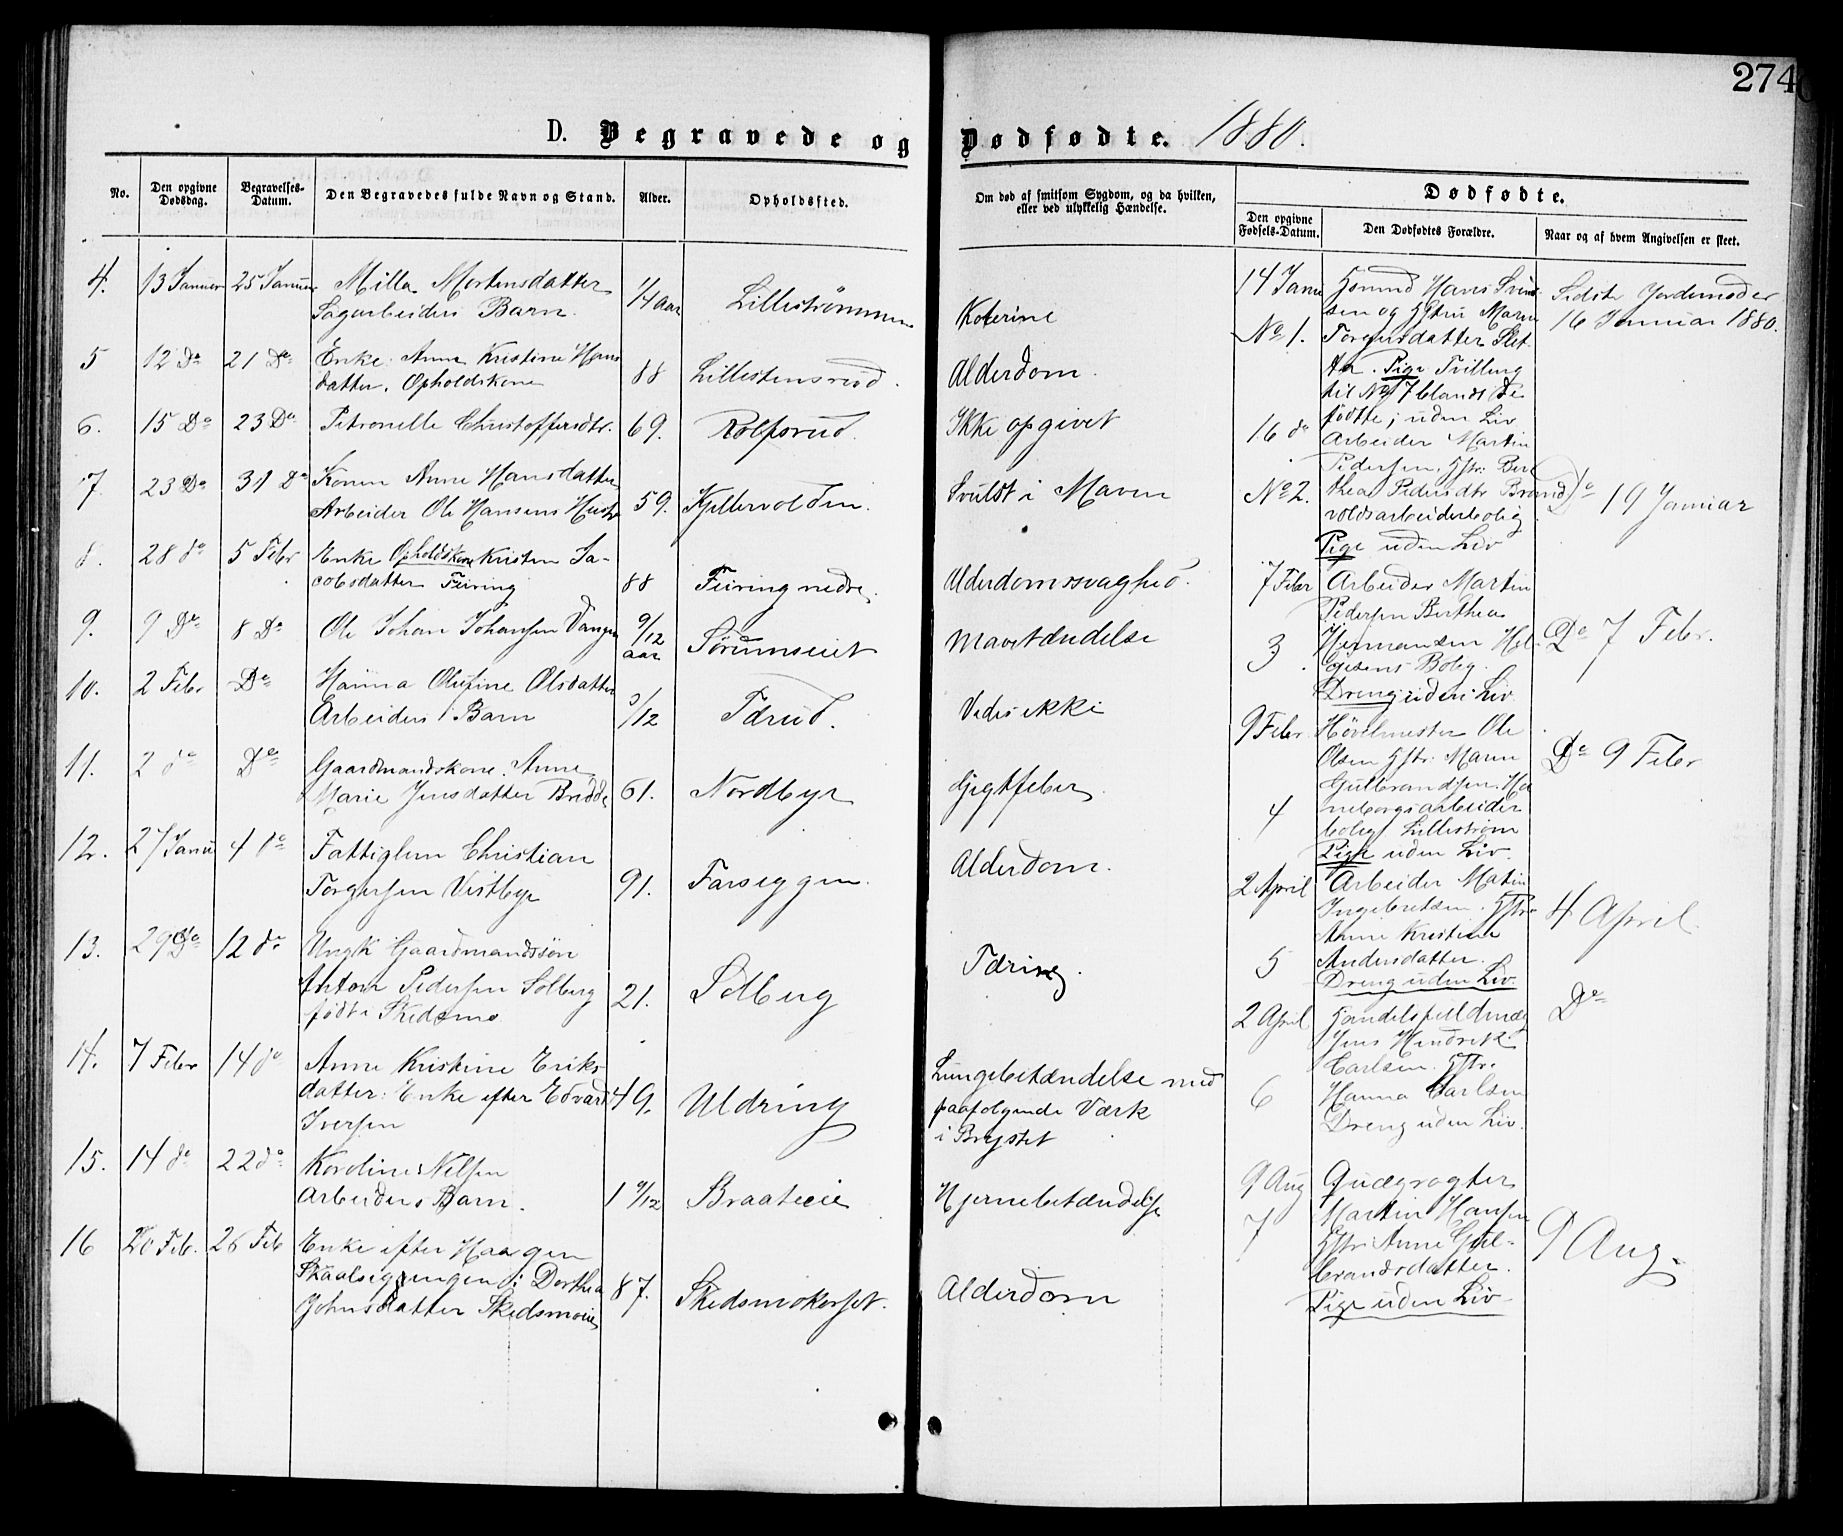 274
D. Begravede og Dødfødte. 1880.
No.
Den opgivne Dødsdag.
Begravelses-Datum.
Den Begravedes fulde Navn og Stand.
Alder.
Opholdssted.
Om død af smitsom Sygdom, og da hvilken,
eller ved ulykkelig Hændelse.
Dødfødte.
Den opgivne Fødsels-Datum.
Den Dødfødtes Forældre.
Naar og af hvem Angivelsen er skeet.
4. 13 Januar 25 Januar Milla Mortensdatter
Sagarbeiders Barn. 1/4 Aar Lillestrømmen Kolerine
5 12 Do 21 Do Enke Anne Kristine Hans
datter. Opholdskone 88 Lillestensrud. Alderdom.
6. 15 Do 23 Do Petronelle Christoffersdtr. 69. Rolfsrud. Ikke opgivet
7 23 Do 31 Do Konen Anne Hansdatter
Arbeider Ole Hansens Hustr 59. Kjellervolden. Svulst i Maven
8. 28 do 5 Febr Enke Opholdskone Kristen Ja-
cobsdatter Føring 88 Føring nedre. Alderdomssvaghed.
9. 9 Do 8 Do Ole Johan Johansen Vangen 9/12
aar Sørumseiet Mavetændelse
10. 2 Febr Do Hanna Olefine Olsdatter
Arbeiders Barn 3/12 Tærud. Vides ikke
11. 2 do Do Gaardmandskone. Anne
Marie Jensdatter 61. Nordbye Gigtfeber
12. 27 Janu 4 do Fattiglem Christian
Torgersen Vestbye 91. Farseggen. Alderdom.
13. 29 Do 12 do Ungk Gaardmandssøn
Anton Pedersen Solberg
født i Skedsmo 21. Solberg Tæring.
14. 7 Febr 14 do Anne Kristine Eriks
datter: Enke efter Edvard
Iversen 49. Uldring Lungebetændelse med
paafølgende Værk
i Brystet
15. 14 do 22 do Karoline Nilsen
Arbeiders Barn. 1 9/12 Braateeie Hjernebetændelse
16 20 Feb. 26 Feb Enke efter Haagen
Dorthea
Johnsdatter Skedsmoeie 87. Skedsmokorset. Alderdom
14 Janu Hans Svend
sen og Hstru Maren
No 1. Torgersdatter Slet-
ta. Pige Tvilling
til No 7 blandt de
fødte; uden Liv
Sidste Jordemoder
16 Januar 1880.
16 do Arbeider Martin
Pedersen. Hstr: Bert
No 2. thea Pedersdtr Brænd
voldsarbeiderbolig
Pige uden Liv
Do 19 Januar
7 Febr Arbeider Martin
Pedersen Berthea
3 Hermansen Hel-
gesens Bolig.
Dreng uden Liv
Do 7 Febr.
9 Febr Høvelmester Ole
Olsen Hstr: Maren
Gulbrandsen. Ha
4 neborgs arbeider
bolig Lillestrøm
Pige uden Liv.
Do 9 Febr
2 April Arbeider Matin
Ingebretsen. Hstr.
Anne Kristine
5 Andersdatter.
Dreng uden Liv.
4 April.
2 April Handelsfuldmæg
Jens Hendrik
Carlsen. Hstr.
6 Hanna Carlsen
Dreng uden Liv.
Do
9 Aug Qvægrøgter
7 Martin Hansen
Hstr. Anne Gul-
brandsdatter.
Pige uden Liv
9 Aug.